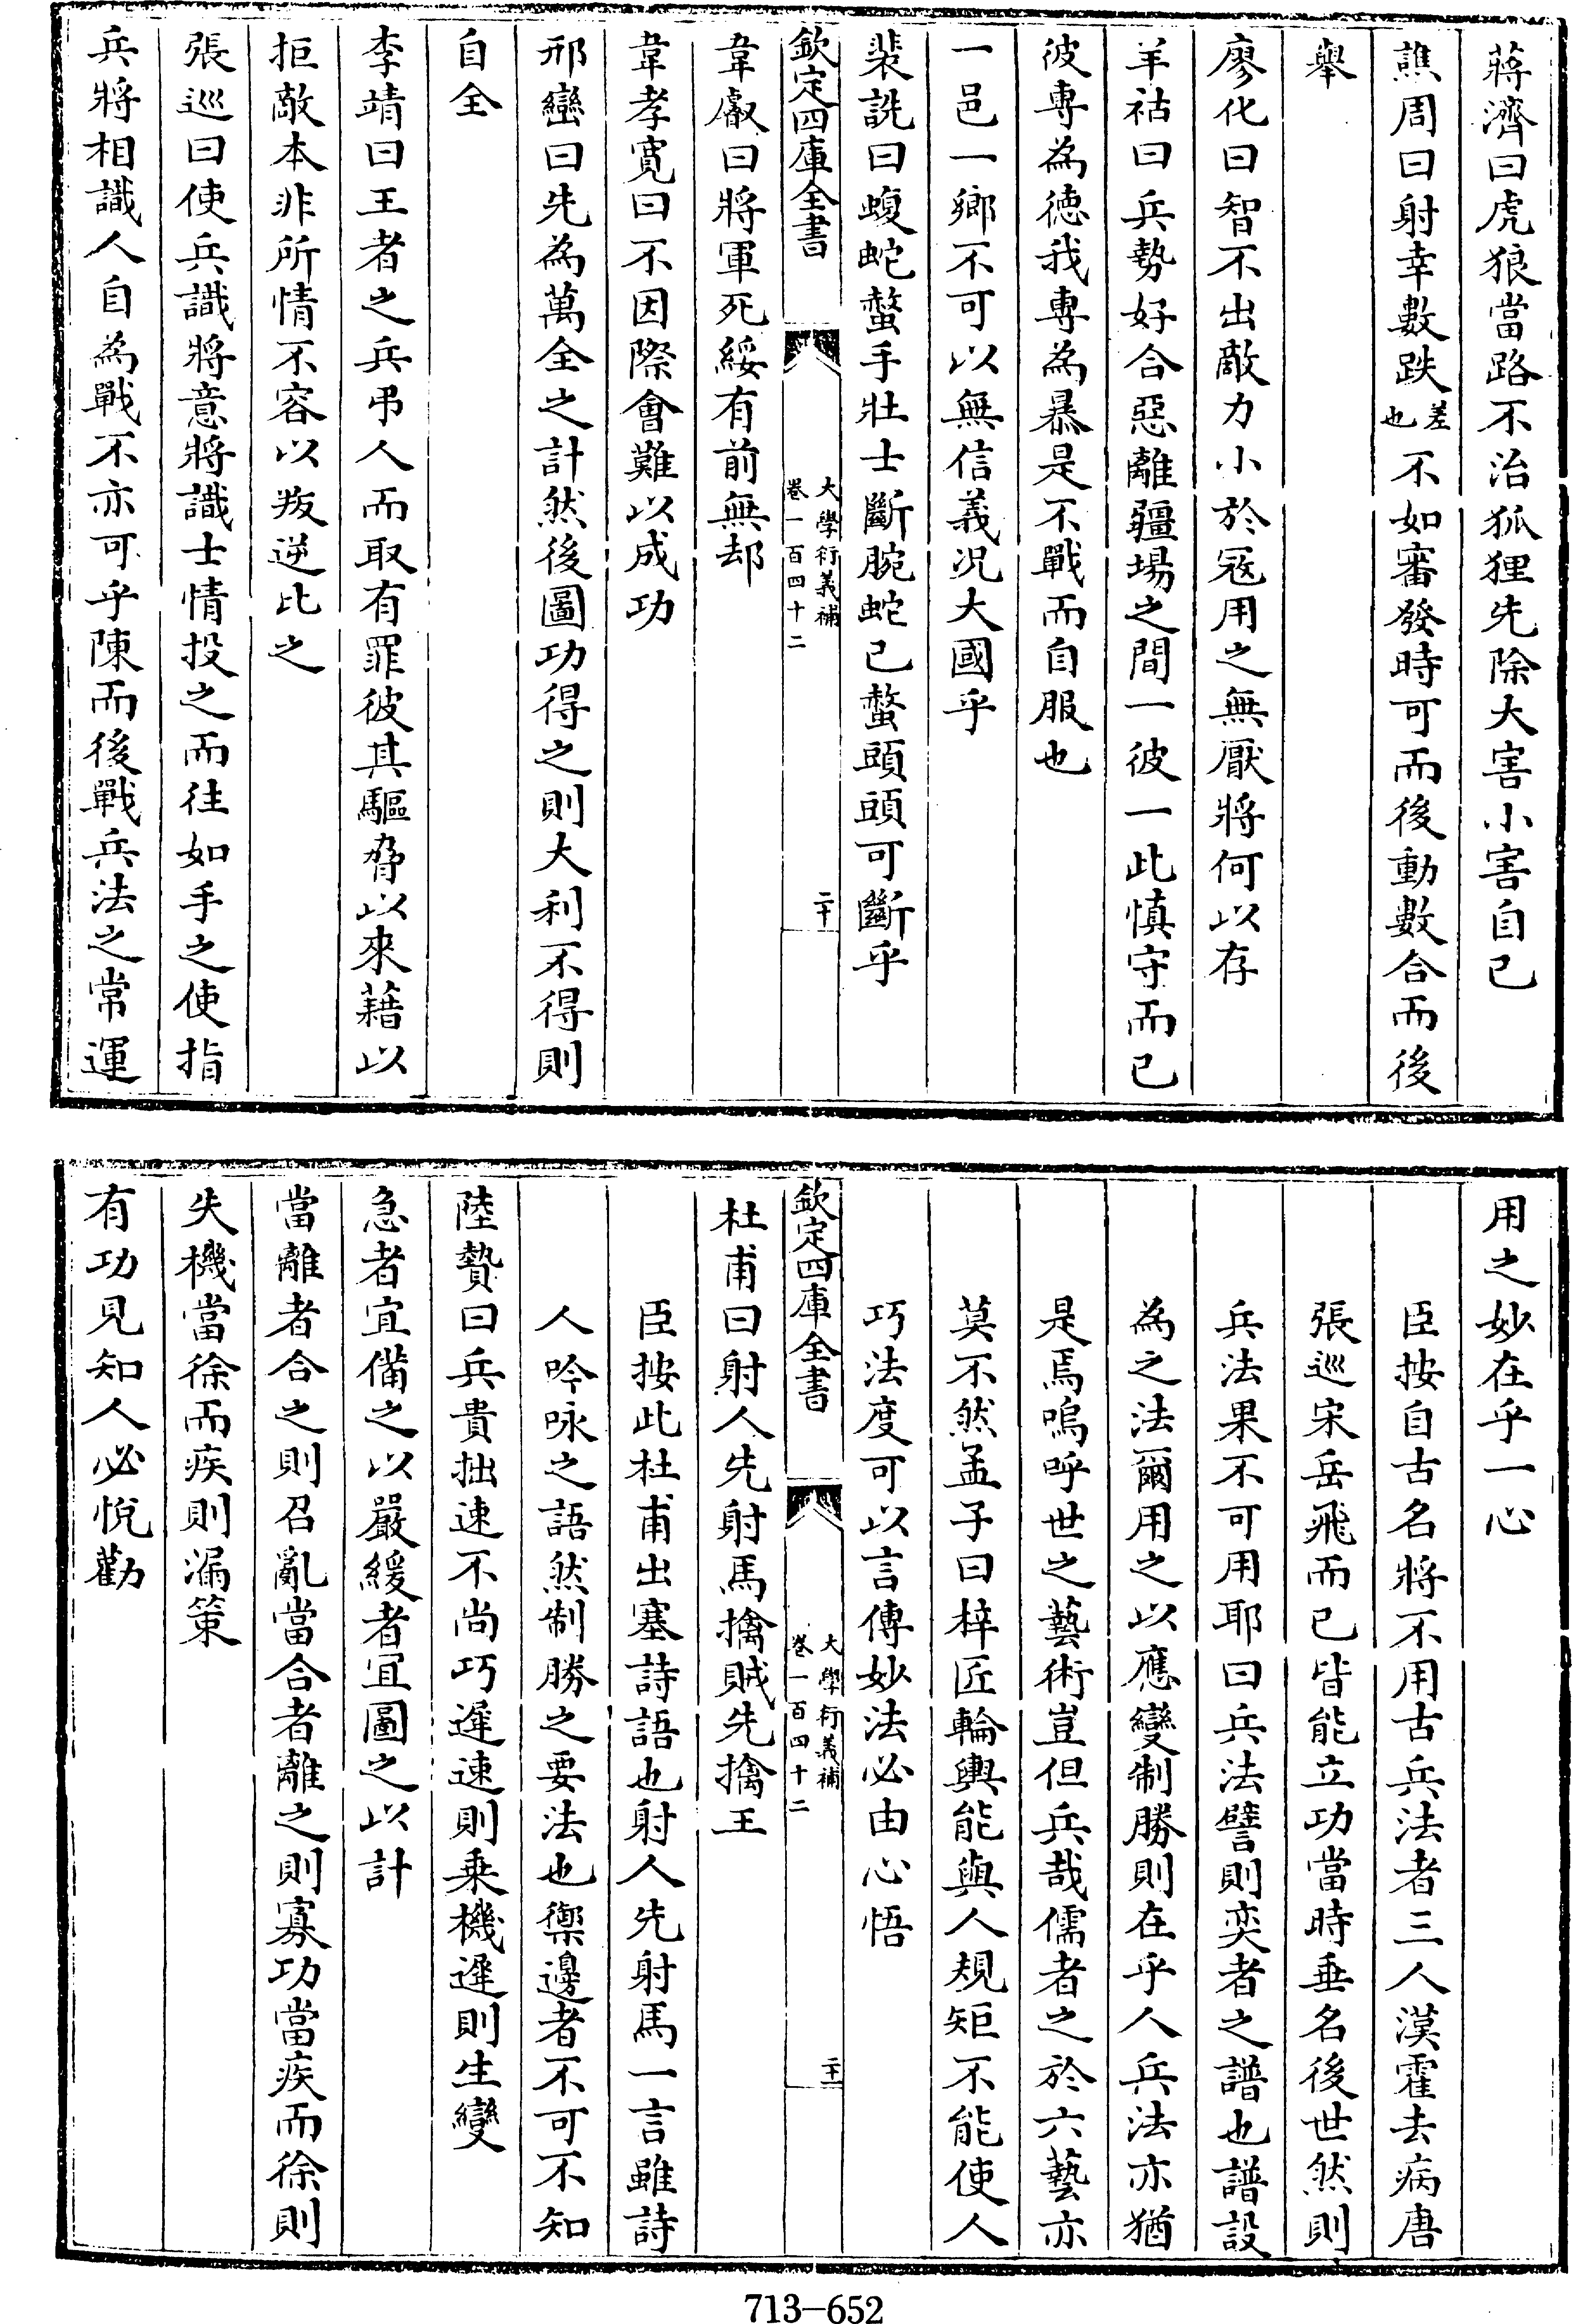 蔣濟曰虎狼當路不治狐狸先除大害小害自已
譙周曰射幸數跌差也不如審發時可而後動數合而後
舉
廖化曰智不出敵力小於寇用之無厭將何以存
羊祜曰兵勢好合惡離疆場之間一彼一此慎守而已
彼專為德我專為暴是不戰而自服也
一邑一鄉不可以無信義况大國乎
裴詵曰蝮蛇螫手壯士斷腕蛇已螫頭頭可斷乎
欽定四庫全書
大學衍義補
卷一百四十二
二十
韋叡曰將軍死綏有前無却
韋孝寬曰不因際會難以成功
邢巒曰先為萬全之計然後圖功得之則大利不得則
自全
李靖曰王者之兵弔人而取有罪彼其驅脅以來藉以
拒敵本非所情不容以叛逆比之
張巡曰使兵識將意將識士情投之而往如手之使指
兵將相識人自為戰不亦可乎陳而後戰兵法之常運
用之妙在乎一心
臣按自古名將不用古兵法者三人漢霍去病唐
張巡宋岳飛而已皆能立功當時垂名後世然則
兵法果不可用耶曰兵法譬則奕者之譜也譜設
為之法爾用之以應變制勝則在乎人兵法亦猶
是焉嗚呼世之藝術豈但兵哉儒者之於六藝亦
莫不然孟子曰梓匠輪輿能與人規矩不能使人
巧法度可以言傳妙法必由心悟
欽定四庫全書
大學衍義補
卷一百四十二
二十一
杜甫曰射人先射馬擒賊先擒王
臣按此杜甫出塞詩語也射人先射馬一言雖詩
人吟咏之語然制勝之要法也禦邊者不可不知
陸贄曰兵貴拙速不尚巧遲速則乗機遲則生變
急者宜備之以嚴緩者宜圖之以計
當離者合之則召亂當合者離之則寡功當疾而徐則
失機當徐而疾則漏策
有功見知人必悅勸
713-652